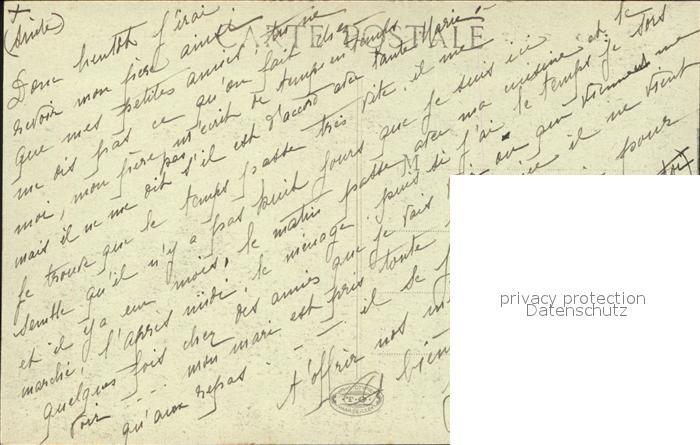 (Suite)
CARTE POSTALE
Donc bientôt j'irai
revoir mon frère ainsi
que mes petites amies. tu ne
me dis pas ce qu'on fait chez
moi, mon frère m'écrit de temps en temps
mais il ne me dit pas s'il est d'accord avec tante Marie
je trouve que le temps passe très vite. il me
semble qu'il n'y a pas huit jours que je suis ici
et il y a un mois, le matin passe avec ma cuisine et le
marché, l'après midi, le ménage, puis si j'ai le temps je sors
quelques fois chez des amies que je vais voir ou qui viennent me
voir mon mari est pris toute il ne vient
qu'aux repas. il se pour
t'offrir nos
bien
privacy protection
Datenschutz